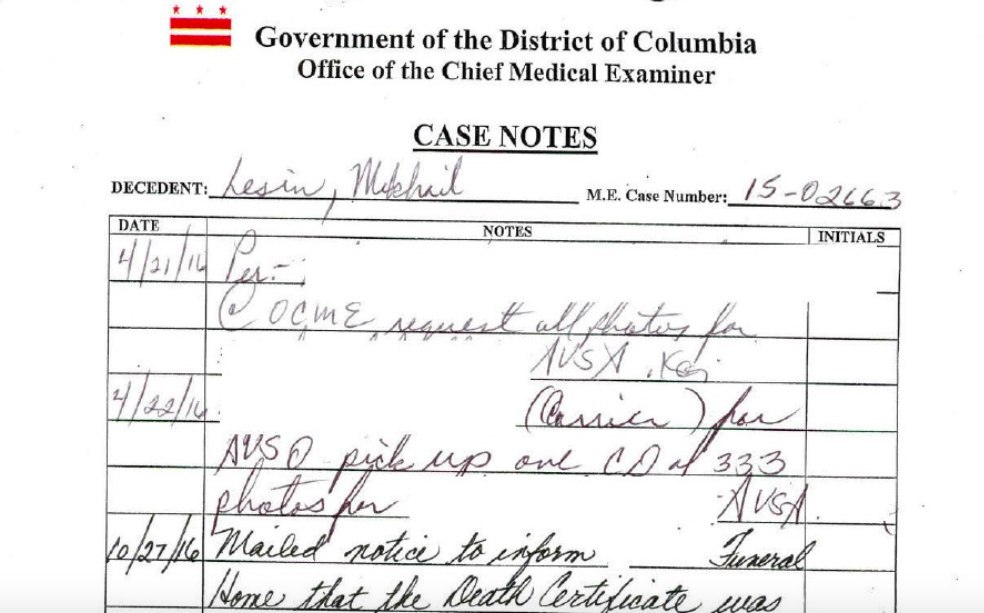 Government of the District of Columbia
Office of the Chief Medical Examiner
CASE NOTES
DECEDENT: Lesin, Mikhail M.E. Case Number: 15-02663
DATE NOTES INITIALS
4/21/16 Per
@ OCME request all photos for
AUSA
4/22/16 (Carrier) for
pick up one CD of 333
photos for AUSA
10/27/16 Mailed notice to inform Funeral
Home that the Death Certificate was